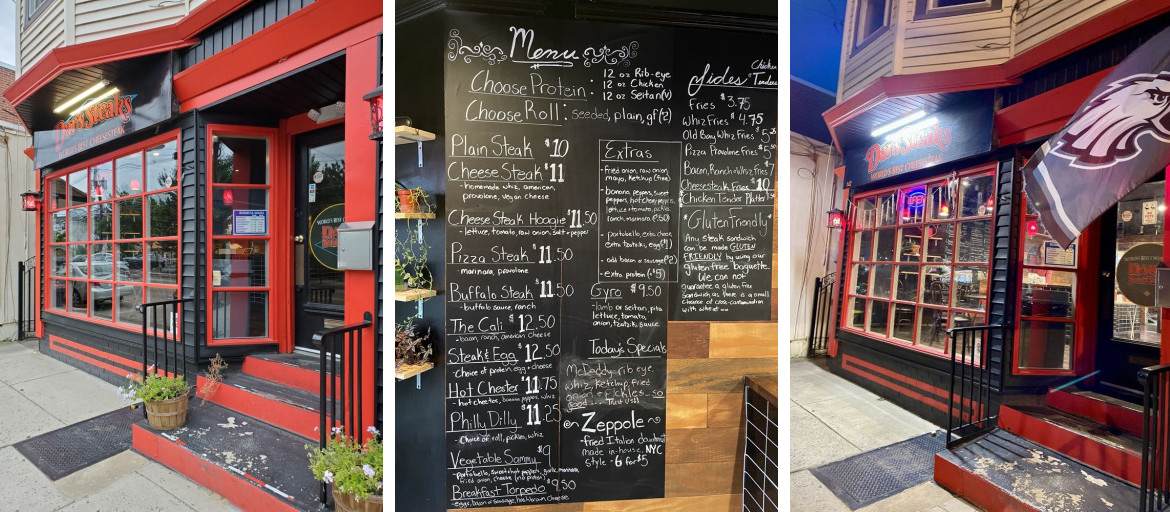 Don's Steaks
WORLD'S BEST CHEESESTEAK
Menu
Choose Protein: 12 oz Rib-eye
12 oz Chicken
12 oz Seitan(v)
Choose Roll: seeded, plain, gf(2)
Plain Steak $10
Cheese Steak $11
-homemade whiz, american,
provolone, vegan cheese
Cheese Steak Hoagie $11.50
-lettuce, tomato, raw onion, salt+pepper
Pizza Steak $11.50
-marinara, provolone
Buffalo Steak $11.50
-buffalo sauce, ranch
The Cali $12.50
-bacon, ranch, american cheese
Steak & Egg $12.50
-choice of protein, egg + cheese
Hot Chester $11.75
-hot cheetos, banana peppers, whiz
Philly Dilly $11.25
-choice of roll, pickles, whiz
Vegetable Sammy $9
-portobello, sweet+hot peppers, garlic,
fried onion, cheese (no protein)
Breakfast Torpedo $9.50
-eggs, bacon or sausage, hashbrown, cheese
Extras
-fried onion, raw onion,
mayo, ketchup (free)
-banana peppers, sweet
peppers, hot cherry peppers,
lettuce + tomato, pickles,
ranch, marinara (.50)
-portobello, extra cheese,
extra tzatziki, egg ($1)
-add bacon or sausage ($2)
-Extra protein ($5)
Gyro $9.50
-lamb or seitan, pita
lettuce, tomato,
onion, tzatziki, sauce
Today's Specials
McDaddy-rib eye,
whiz, ketchup, fried
onion + pickles - so
good
Zeppole
-fried Italian doughnut
made in-house. NYC
style - 6 for $5
Sides
Chicken
Tenders
Fries $3.75
Whiz Fries $4.75
Old Bay, Whiz Fries $5
Pizza Provolone Fries $5
Bacon, Ranch + Whiz Fries $7
Cheesesteak Fries $10
Chicken Tender Platter
*Gluten Friendly*
Any steak sandwich
can be made GLUTEN
FRIENDLY by using our
gluten free baguette.
We can not
guarantee a gluten free
sandwich as there is a small
chance of cross-contamination
with wheat
Don's Steaks
WORLD'S BEST CHEESESTEAK